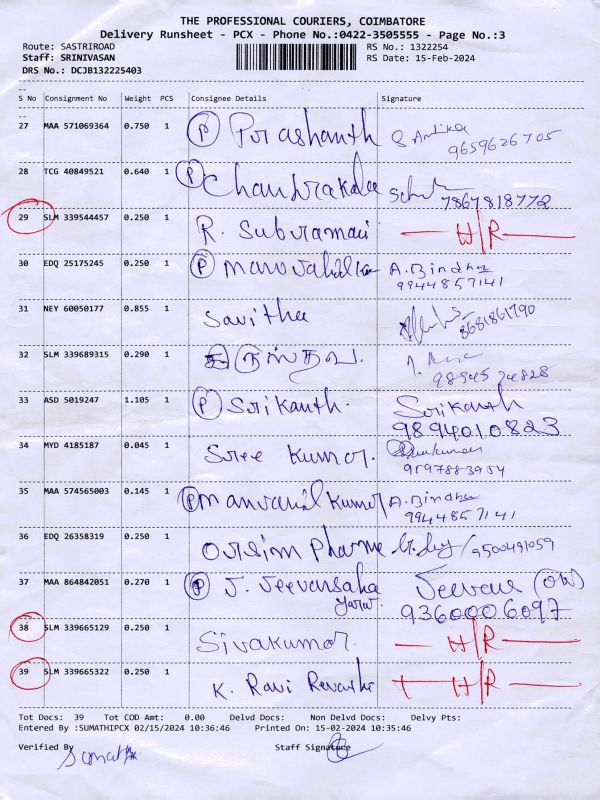 THE PROFESSIONAL COURIERS, COIMBATORE
Delivery Runsheet - PCX - Phone No.:0422-3505555 - Page No.:3
Route: SASTRIROAD RS No.: 1322254
Staff: SRINIVASAN RS Date: 15-Feb-2024
DRS No.: DCJB132225403
S No Consignment No Weight PCS Consignee Details Signature
27 MAA 571069364 0.750 1 P Prashanth
9659626705
28 TCG 40849521 0.640 1 P Chandrakala
7867818772
29 SLM 339544457 0.250 1 R. Subramani H/R
30 EDQ 25175245 0.250 1 P A. Bindhu
9944857141
31 NEY 60050177 0.855 1 Savitha
8681861790
32 SLM 339689315 0.290 1
33 ASD 5019247 1.105 1 P Srikanth. Srikanth
9894010823
34 MYD 4185187 0.045 1 Sree Kumar.
9597883954
35 MAA 574565003 0.145 1 P Kumar A. Bindhu
9944857141
36 EDQ 26358319 0.250 1 Pharma /9500491059
37 MAA 864842051 0.270 1 P J. Jeevansaha
9360006097
38 SLM 339665129 0.250 1 Sivakumar. H/R
39 SLM 339665322 0.250 1 K. Ravi H/R
Tot Docs: 39 Tot COD Amt: 0.00 Delvd Docs: Non Delvd Docs: Delvy Pts:
Entered By :SUMATHIPCX 02/15/2024 10:36:46 Printed On: 15-02-2024 10:35:46
Verified By Sumathi Staff Signature